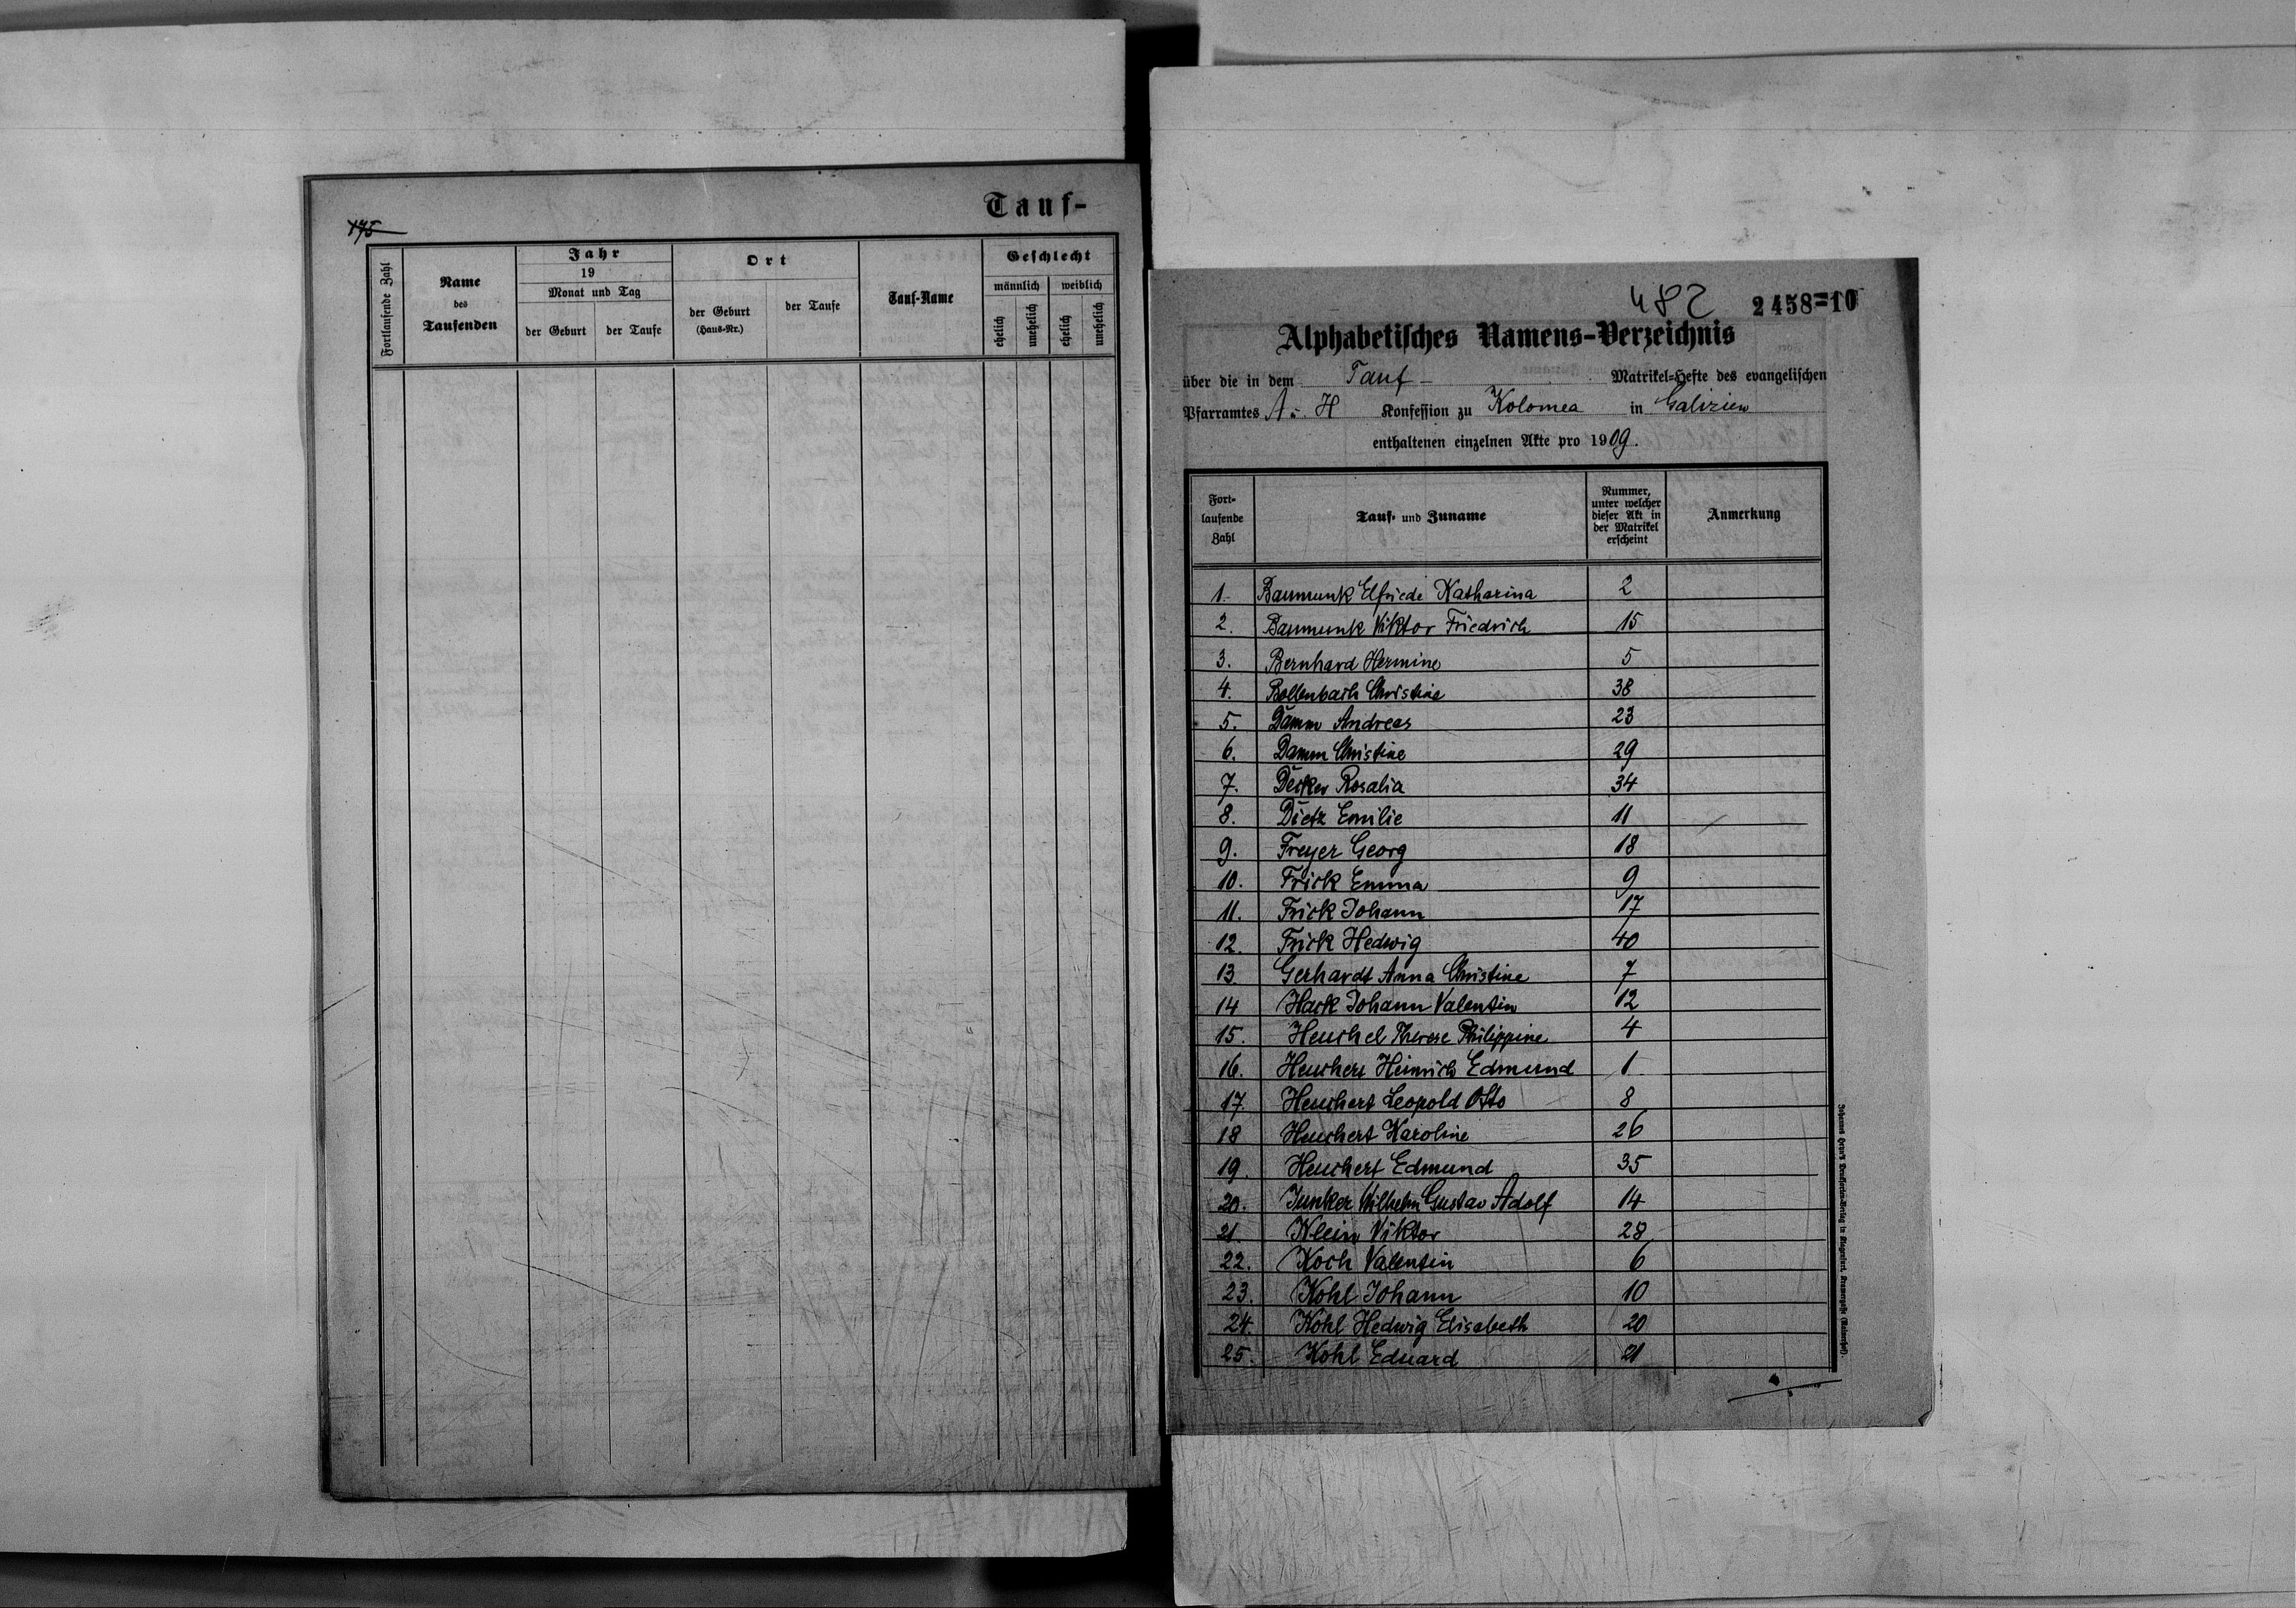 Tauf-
175
Fortlaufende Zahl
Name
des
Taufenden
Jahr
19
Monat und Tag
der Geburt
der Taufe
Ort
der Geburt
(Haus-Nr.)
der Taufe
Tauf-Name
Geschlecht
männlich
weiblich
ehelich
unehelich
ehelich
unehelich
482
2458=10
Alphabetisches Namens-Verzeichnis
über die in dem Tauf- Matrikel-Hefte des evangelischen
Pfarramtes A. H Konfession zu Kolomea in Galizien
enthaltenen einzelnen Akte pro 1909.
Fort-
laufende
Zahl
Tauf- und Zuname
Nummer,
unter welcher
dieser Akt in
der Matrikel
erscheint
Anmerkung
1. Baumunk Elfriede Katharina 2
2. Baumunk Viktor Friedrich 15
3. Bernhard Hermine 5
4. Bollenbach Christine 38
5. Damm Andreas 23
6. Damm Christine 29
7. Decker Rosalia 34
8. Dietz Emilie 11
9. Freyer Georg 18
10. Frick Emma 9
11. Frick Johann 17
12. Frick Hedwig 40
13. Gerhardt Anna Christine 7
14 Hack Johann Valentin 12
15. Heuchel Therese Philippine 4
16. Heuchert Heinrich Edmund 1
17. Heuchert Leopold Otto 8
18 Heuchert Karoline 26
19. Heuchert Edmund 35
20. Junker Wilhelm Gustav Adolf 14
21. Klein Viktor 28
22. Koch Valentin 6
23. Kohl Johann 10
24. Kohl Hedwig Elisabeth 20
25. Kohl Eduard 21